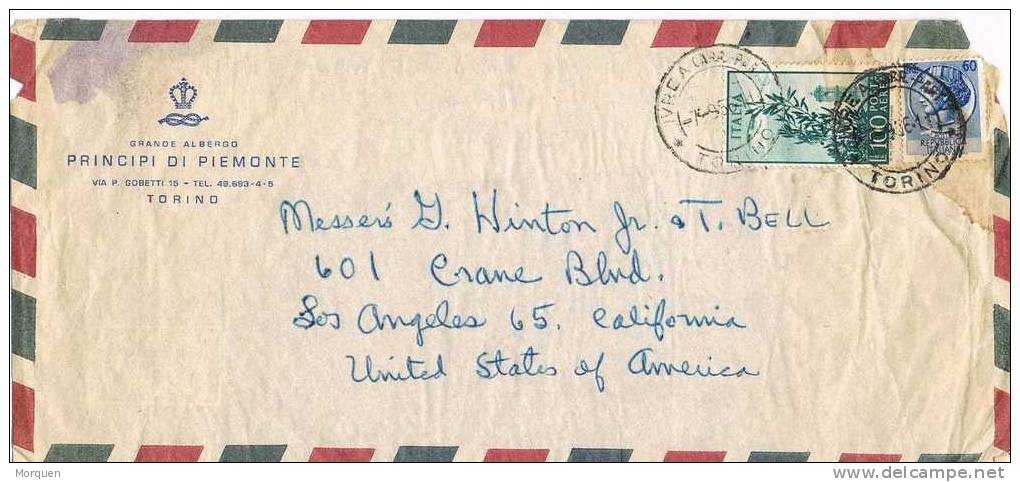 GRANDE ALBERGO
PRINCIPI DI PIEMONTE
VIA P. GOBETTI 15 - TEL. 49.693-4-5
TORINO
IVREA
TORINO
ITALIA
L.100 POSTA AEREA
60
REPUBBLICA
TORINO
Messers G. Hinton Jr. & T. BELL
601 Crane Blvd.
Los Angeles 65. California
United States of America
Morquen
www.delcampe.net